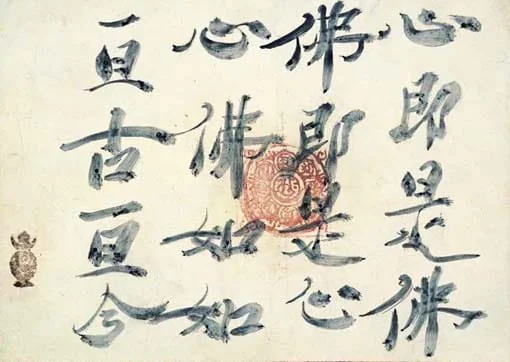 心即是佛
佛即是心
心佛如如
亘古亘今